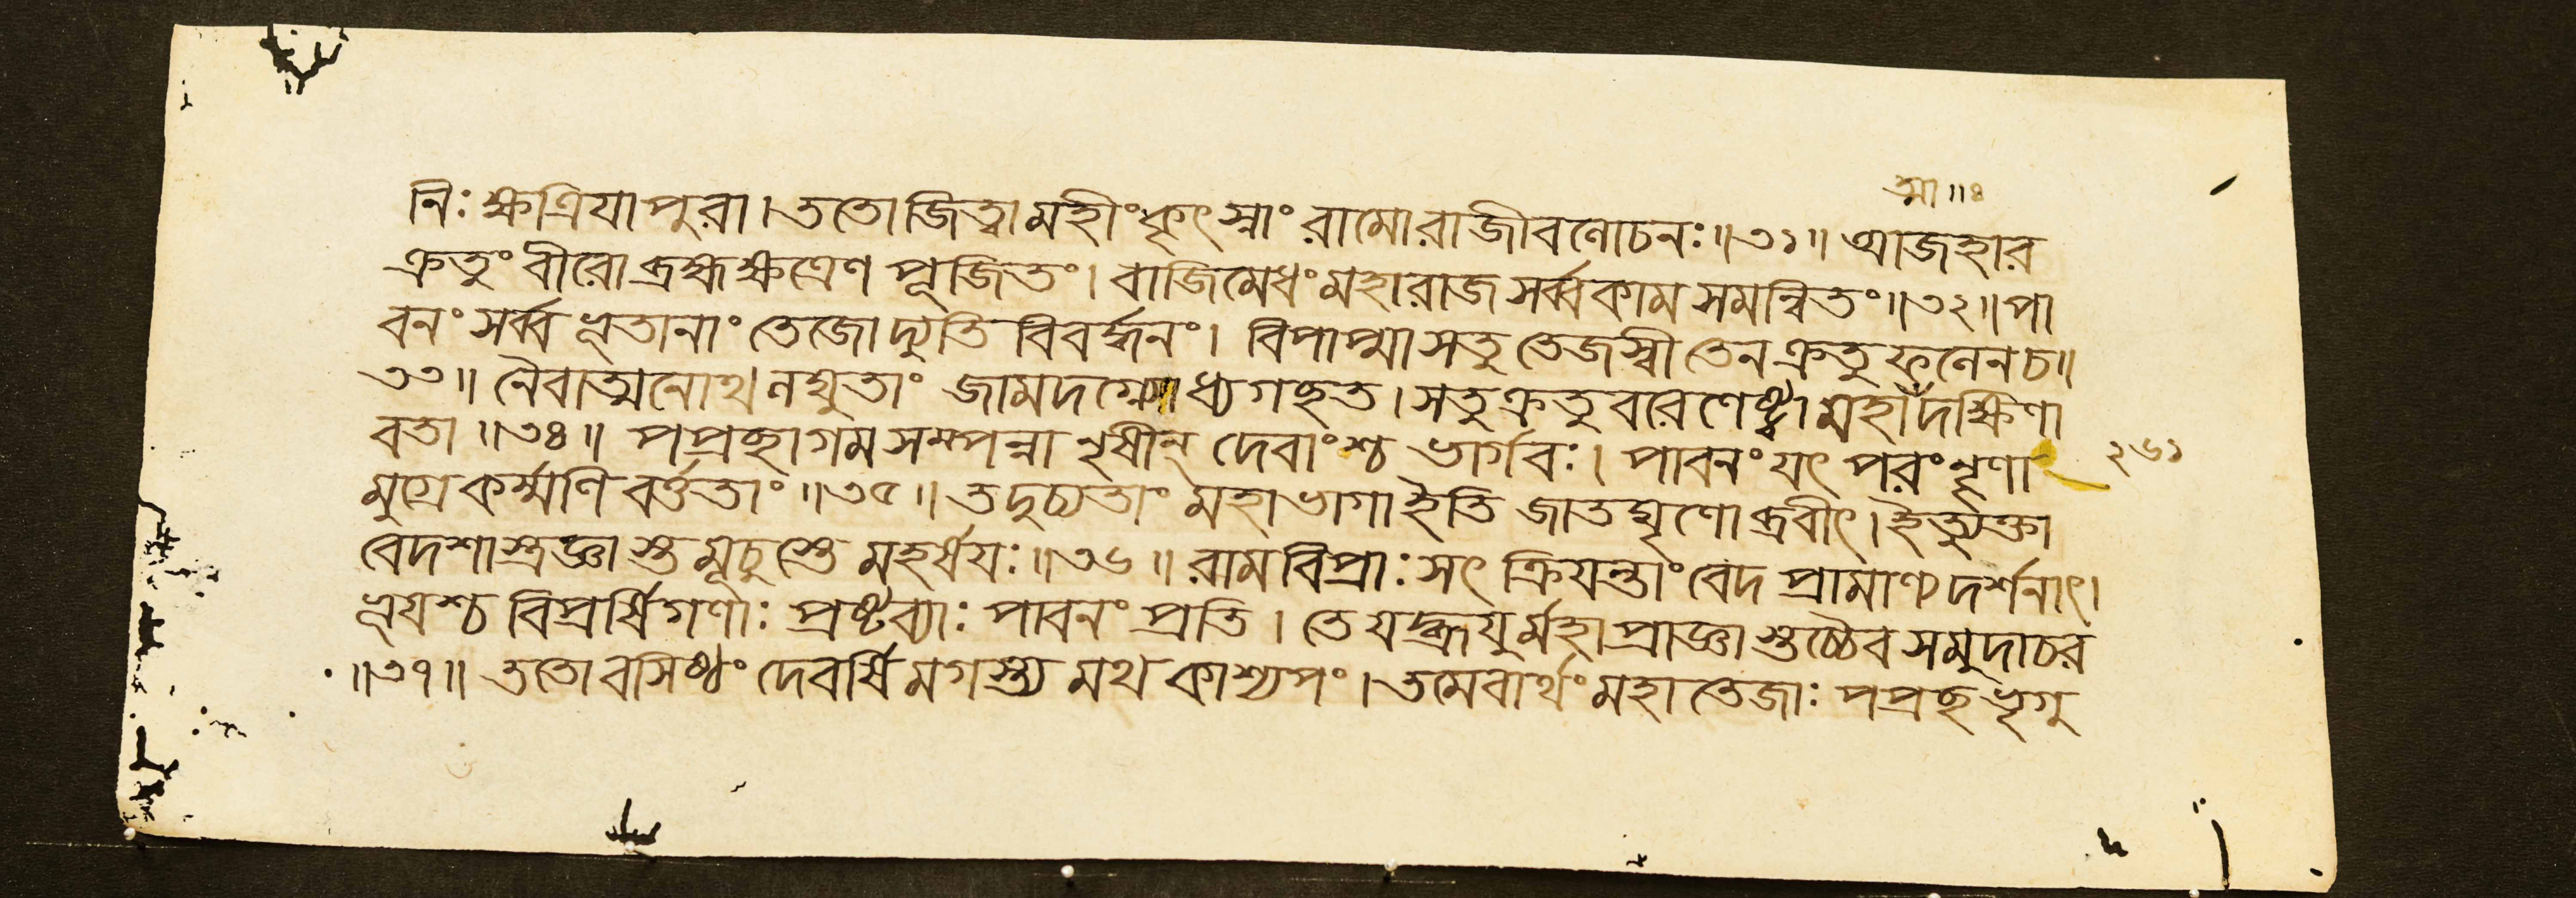 আ॥৪
নিঃ ক্ষত্রিযা পুরা। ততো জিত্বা মহীং কৃৎস্নাং রামো রাজীবলোচনঃ॥৩১॥ আজহার
ক্রতুং বীরো ব্রহ্মক্ষত্রেণ পূজিতং। বাজিমেধং মহারাজ সর্ব্বকাম সমন্বিতং॥৩২॥ পা
বনং সর্ব্ব ভূতানাং তেজো দ্যুতি বিবর্দ্ধনং। বিপাপ্মা সতু তেজস্বী তেন ক্রতু ফলেন চ॥
৩৩॥ নৈবাত্মনোথ লঘুতাং জামদগ্ন্যোধ্যগছত। সতু ক্রতু বরেণেষ্ট্বা মহাঁদক্ষিণা
বতা॥৩৪॥ পপ্রছাগম সম্পন্না নৃষীন্ দেবাংশ্চ ভার্গবঃ। পাবনং যৎ পরং নৃণা
২৬১
মুগ্রে কর্ম্মণি বর্ত্ততাং॥৩৫॥ তদুচ্যতাং মহাভাগা ইতি জাতঘৃণো ব্রবীৎ। ইত্যুক্তা
বেদশাস্ত্রজ্ঞা স্তমূচুস্তে মহর্ষযঃ॥৩৬॥ রাম বিপ্রাঃ সৎ ক্রিযন্তাং বেদ প্রামাণ্য দর্শনাৎ।
ভূযশ্চ বিপ্রর্ষি গণাঃ প্রষ্টব্যাঃ পাবনং প্রতি। তে যদ্ব্রূযুর্মহাপ্রাজ্ঞা স্তচ্চৈব সমুদাচর
॥৩৭॥ ততো বসিষ্ঠং দেবর্ষি মগস্ত্য মথ কাশ্যপং। তমেবার্থং মহা তেজাঃ পপ্রছ ভৃগু